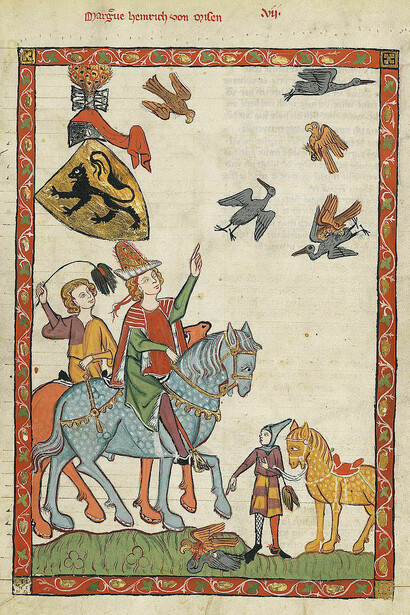 Margue heinrich von misen vij.